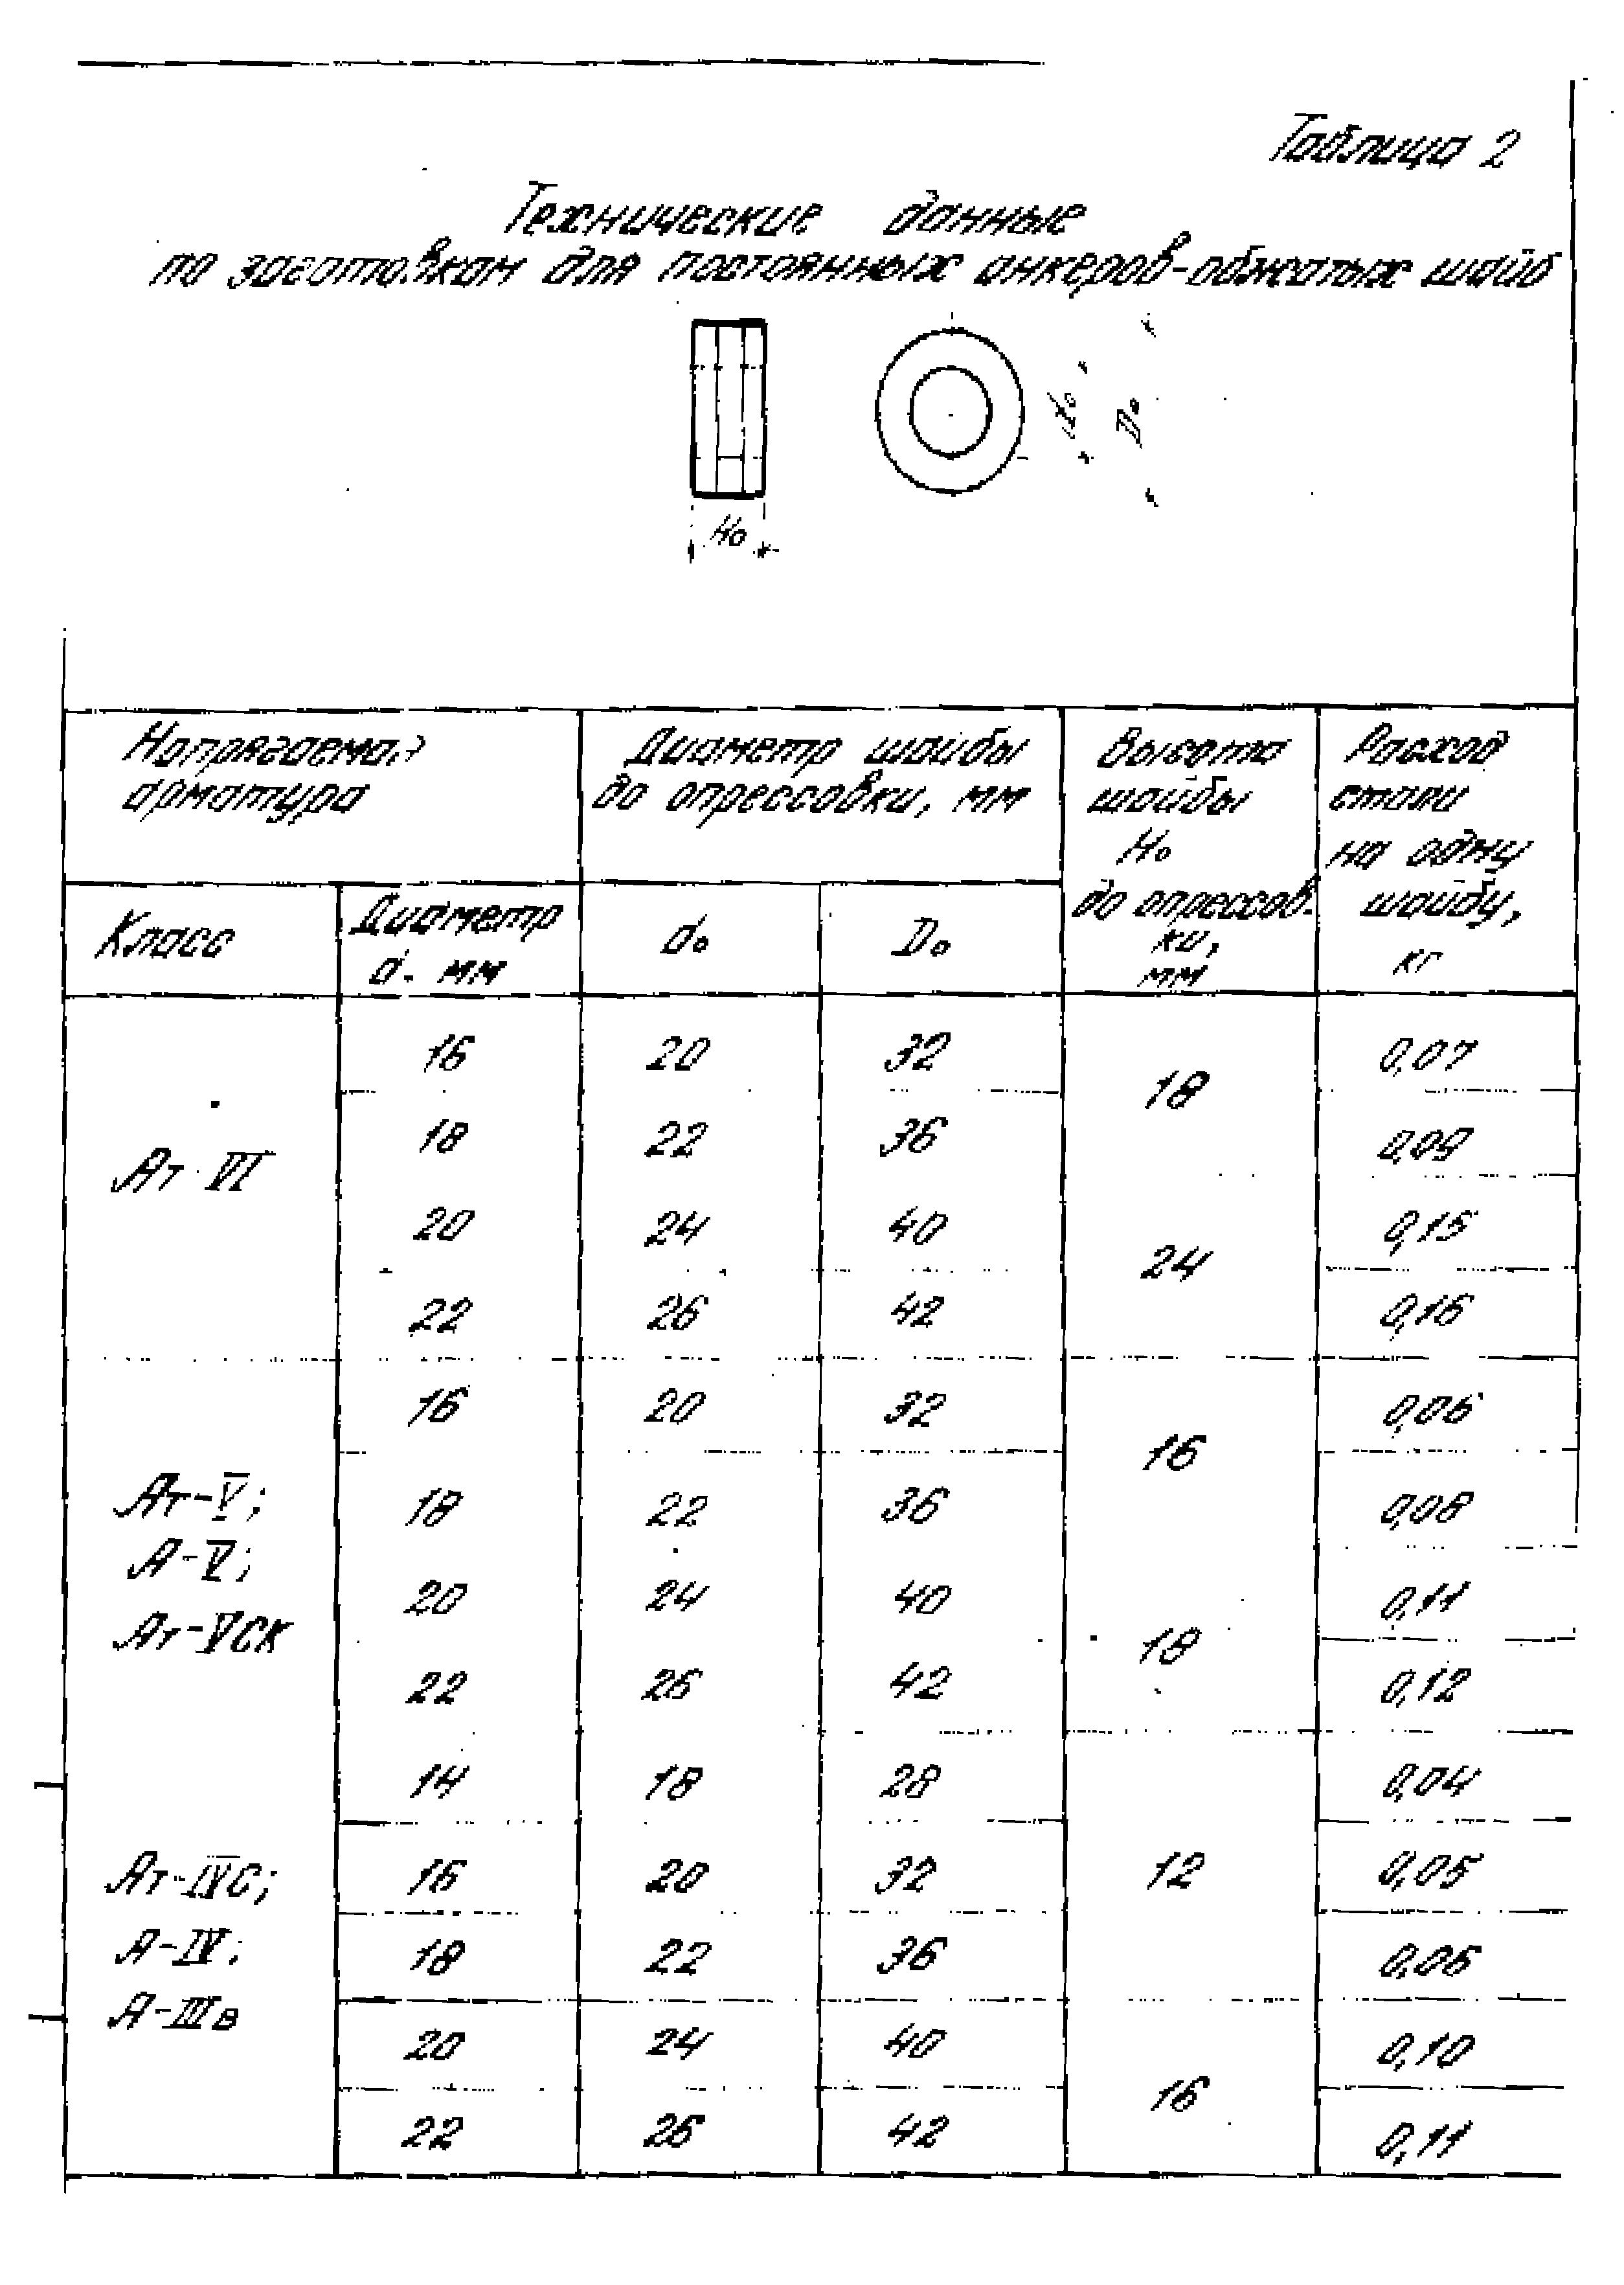 Таблица 2
Технические данные
по заготовкам для постоянных анкеров-обжатых шайб
d₀
D₀
H₀
Напрягаемая арматура
Диаметр шайбы до опрессовки, мм
Высота шайбы H₀ до опрессов- ки, мм
Расход стали на одну шайбу, кг
Класс
Диаметр d. мм
d₀
D₀
Ат-VI
16 20 32 18 0,07
18 22 36 0,09
20 24 40 24 0,15
22 26 42 0,16
Ат-V;
А-V;
Ат-VСК
16 20 32 16 0,06
18 22 36 0,08
20 24 40 18 0,11
22 26 42 0,12
Ат-IVС;
А-IV;
А-IIIв
14 18 28 12 0,04
16 20 32 0,05
18 22 36 0,06
20 24 40 16 0,10
22 26 42 0,11